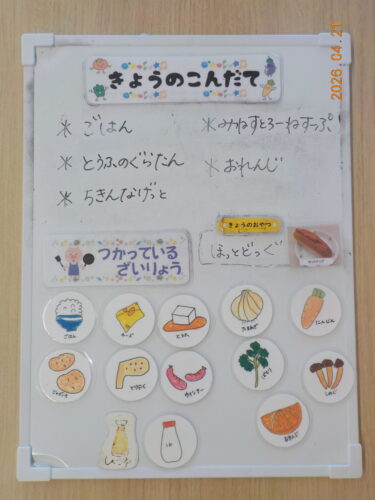 2026.04.21
きょうのこんだて
* ごはん
* とうふのぐらたん
* ちきんなげっと
* みねすとろーねすっぷ
* おれんじ
きょうのおやつ
ほっとどっぐ
つかっている
ざいりょう
ごはん
チーズ
とうふ
たまねぎ
にんじん
とりにく
ウインナー
パセリ
しめじ
おれんじ